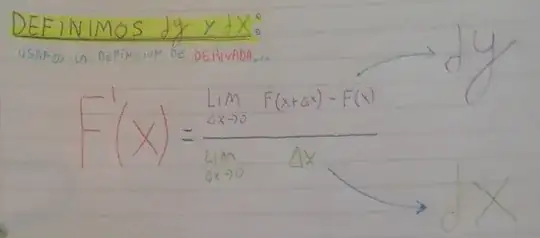 DEFINIMOS dy y dx:
USANDO LA DEFINICION DE DERIVADA...
F'(x) = Lim Δx→0 F(x+Δx) - F(x)
Lim Δx→0 Δx
dy
dx